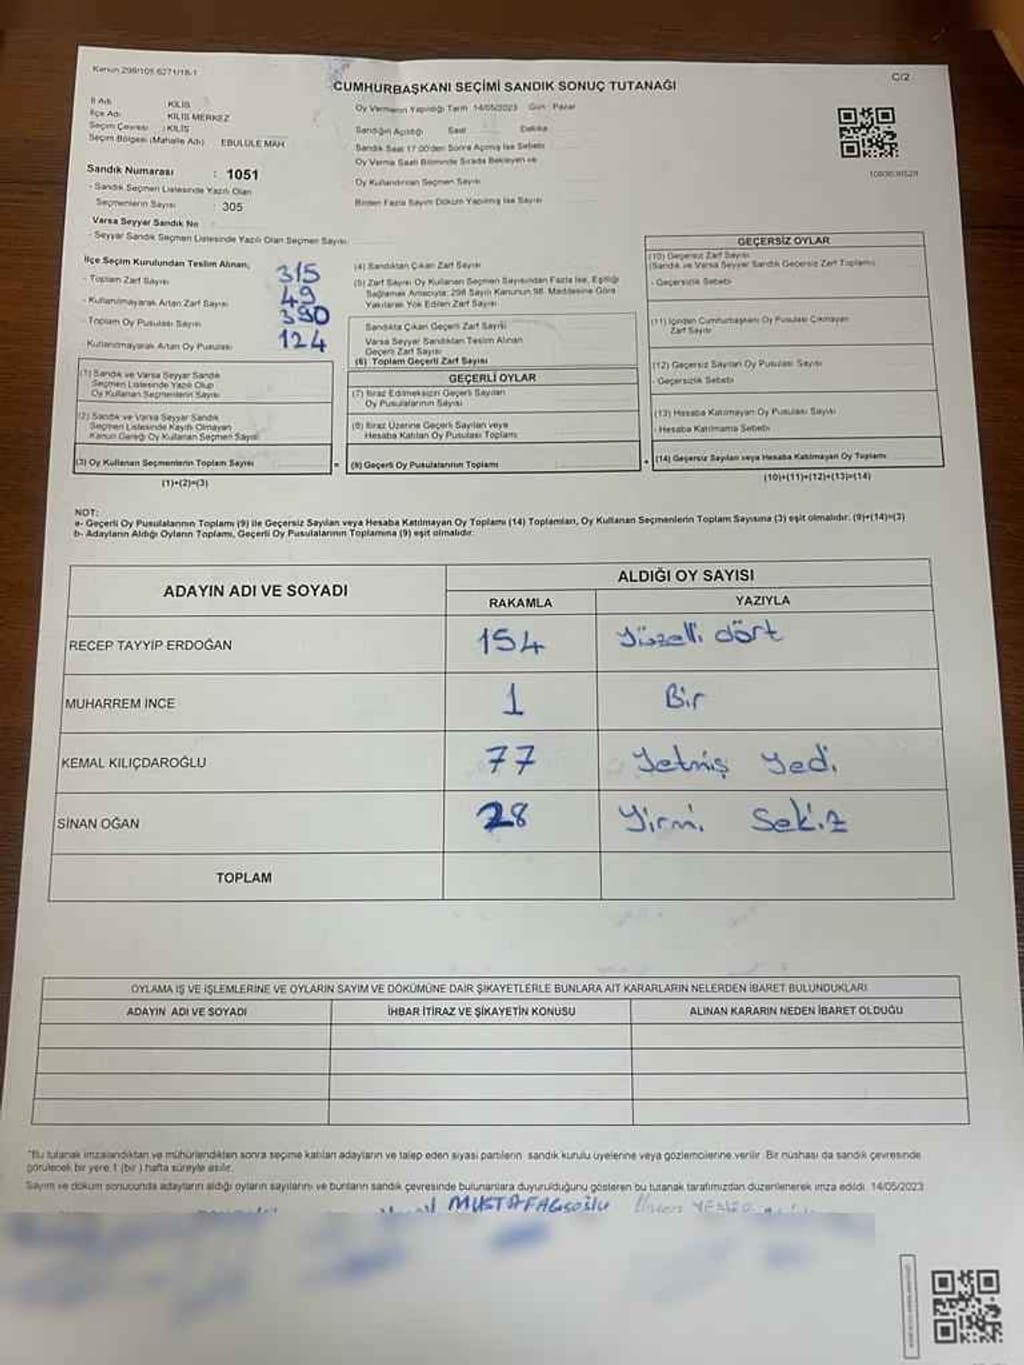 Kanun 298/105 6271/18-1
C/2
CUMHURBAŞKANI SEÇİMİ SANDIK SONUÇ TUTANAĞI
İl Adı KİLİS
İlçe Adı KİLİS MERKEZ
Seçim Çevresi : KİLİS
Seçim Bölgesi (Mahalle Adı) EBULULE MAH
Sandık Numarası : 1051
- Sandık Seçmen Listesinde Yazılı Olan
Seçmenlerin Sayısı : 305
Varsa Seyyar Sandık No
- Seyyar Sandık Seçmen Listesinde Yazılı Olan Seçmen Sayısı
Oy Vermenin Yapıldığı Tarih 14/05/2023 Gün : Pazar
Sandığın Açıldığı Saat Dakika
Sandık Saat 17:00'den Sonra Açılmış İse Sebebi
Oy Verme Saati Bitiminde Sırada Bekleyen ve
Oy Kullandırılan Seçmen Sayısı
Birden Fazla Sayım Döküm Yapılmış İse Sayısı
İlçe Seçim Kurulundan Teslim Alınan;
- Toplam Zarf Sayısı 315
- Kullanılmayarak Artan Zarf Sayısı 49
- Toplam Oy Pusulası Sayısı 330
- Kullanılmayarak Artan Oy Pusulası 124
(1) Sandık ve Varsa Seyyar Sandık
Seçmen Listesinde Yazılı Olup
Oy Kullanan Seçmenlerin Sayısı
(2) Sandık ve Varsa Seyyar Sandık
Seçmen Listesinde Kayıtlı Olmayan
Kanun Gereği Oy Kullanan Seçmen Sayısı
(3) Oy Kullanan Seçmenlerin Toplam Sayısı
(1)+(2)=(3)
(4) Sandıktan Çıkan Zarf Sayısı
(5) Zarf Sayısı Oy Kullanan Seçmen Sayısından Fazla İse, Eşitliği
Sağlamak Amacıyla; 298 Sayılı Kanunun 98. Maddesine Göre
Yakılarak Yok Edilen Zarf Sayısı
Sandıkta Çıkan Geçerli Zarf Sayısı
Varsa Seyyar Sandıktan Teslim Alınan
Geçerli Zarf Sayısı
(6) Toplam Geçerli Zarf Sayısı
GEÇERLİ OYLAR
(7) İtiraz Edilmeksizin Geçerli Sayılan
Oy Pusulalarının Sayısı
(8) İtiraz Üzerine Geçerli Sayılan veya
Hesaba Katılan Oy Pusulası Toplamı
= (9) Geçerli Oy Pusulalarının Toplamı
GEÇERSİZ OYLAR
(10) Geçersiz Zarf Sayısı
(Sandık ve Varsa Seyyar Sandık Geçersiz Zarf Toplamı)
- Geçersizlik Sebebi
(11) İçinden Cumhurbaşkanı Oy Pusulası Çıkmayan
Zarf Sayısı
(12) Geçersiz Sayılan Oy Pusulası Sayısı
- Geçersizlik Sebebi
(13) Hesaba Katılmayan Oy Pusulası Sayısı
- Hesaba Katılmama Sebebi
+ (14) Geçersiz Sayılan veya Hesaba Katılmayan Oy Toplamı
(10)+(11)+(12)+(13)=(14)
NOT:
a- Geçerli Oy Pusulalarının Toplamı (9) ile Geçersiz Sayılan veya Hesaba Katılmayan Oy Toplamı (14) Toplamları, Oy Kullanan Seçmenlerin Toplam Sayısına (3) eşit olmalıdır. (9)+(14)=(3)
b- Adayların Aldığı Oyların Toplamı, Geçerli Oy Pusulalarının Toplamına (9) eşit olmalıdır.
ADAYIN ADI VE SOYADI
ALDIĞI OY SAYISI
RAKAMLA YAZIYLA
RECEP TAYYİP ERDOĞAN 154 Yüzelli dört
MUHARREM İNCE 1 Bir
KEMAL KILIÇDAROĞLU 77 Yetmiş Yedi
SİNAN OĞAN 28 Yirmi Sekiz
TOPLAM
OYLAMA İŞ VE İŞLEMLERİNE VE OYLARIN SAYIM VE DÖKÜMÜNE DAİR ŞİKAYETLERLE BUNLARA AİT KARARLARIN NELERDEN İBARET BULUNDUKLARI
ADAYIN ADI VE SOYADI İHBAR İTİRAZ VE ŞİKAYETİN KONUSU ALINAN KARARIN NEDEN İBARET OLDUĞU
"Bu tutanak imzalandıktan ve mühürlendikten sonra seçime katılan adayların ve talep eden siyasi partilerin sandık kurulu üyelerine veya gözlemcilerine verilir. Bir nüshası da sandık çevresinde
görülecek bir yere 1 (bir ) hafta süreyle asılır.
Sayım ve döküm sonucunda adayların aldığı oyların sayılarını ve bunların sandık çevresinde bulunanlara duyurulduğunu gösteren bu tutanak tarafımızdan düzenlenerek imza edildi. 14/05/2023
MUSTAFAGİSOĞLU